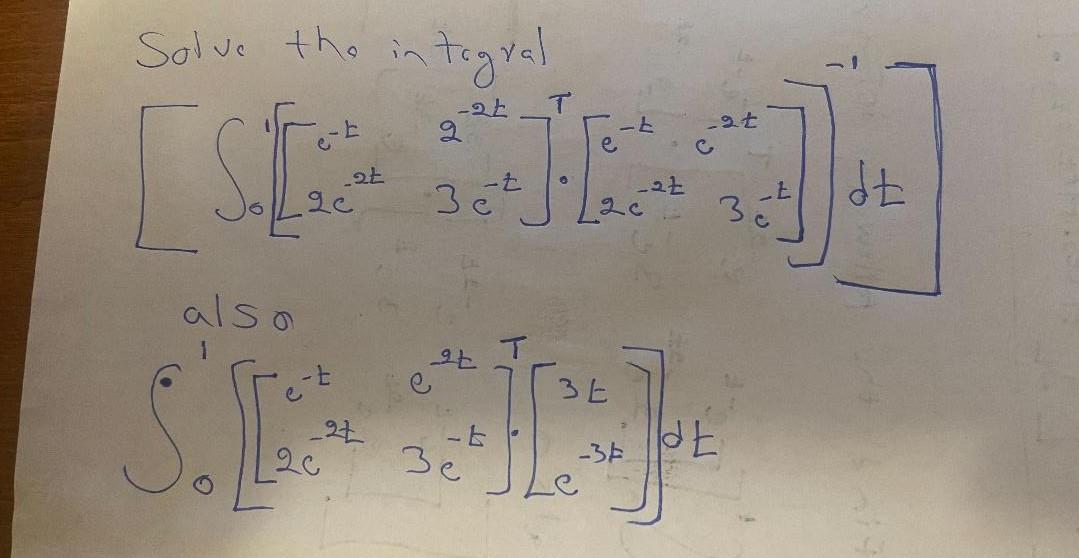 Solve the integral
[ ∫₀¹ [ [ e^{-t}  2^{-2t} ; 2e^{-2t}  3e^{-t} ]^T · [ e^{-t}  e^{-2t} ; 2e^{-2t}  3e^{-t} ] ]^{-1} dt ]
also
∫₀¹ [ [ e^{-t}  e^{-2t} ; 2e^{-2t}  3e^{-t} ]^T · [ 3t ; e^{-3t} ] ] dt